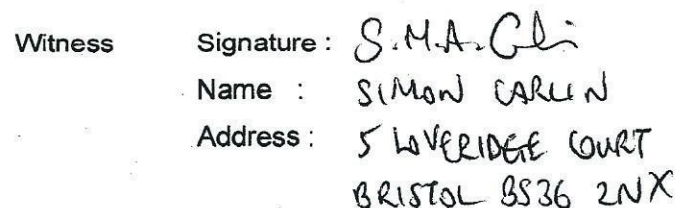 Witness Signature : S.M.A. Carlin
Name : SIMON CARLIN
Address : 5 LOVERIDGE COURT
BRISTOL BS36 2NX